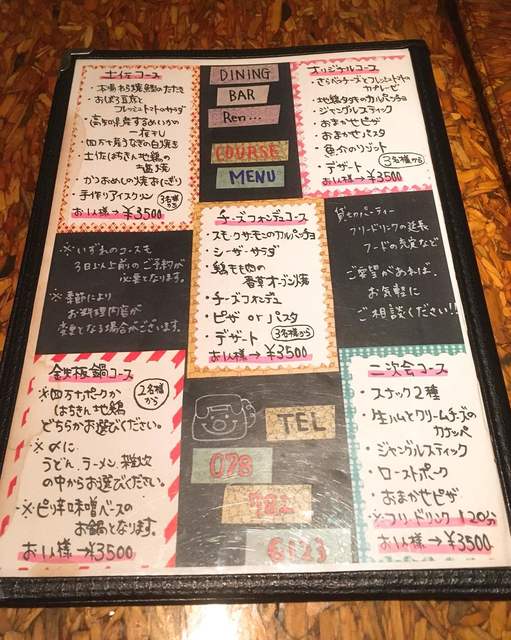 土佐コース
・本場わら焼鰹のたたき
・おぼろ豆腐と
フレッシュトマトのサラダ
・高知県産するめいかの
一夜干し
・四万十産うなぎの白焼き
・土佐はちきん地鶏の
塩焼
・かつおめしの焼おにぎり
・手作りアイスクリン
お一人様→¥3500
DINING
BAR
Ren...
COURSE
MENU
オリジナルコース
・さらべつチーズとフレッシュトマトの
カプレーゼ
・地鶏タタキのカルパッチョ
・ジャングルスティック
・おまかせピザ
・おまかせパスタ
・魚介のリゾット
・デザート
3名様から
お一人様→¥3500
チーズフォンデュコース
・スモークサーモンのカルパッチョ
・シーザーサラダ
・鶏もも肉の
香草オーブン焼
・チーズフォンデュ
・ピザ or パスタ
・デザート
3名様から
お一人様→¥3500
※いずれのコースも
3日以上前のご予約が
必要となります。
※季節により
お料理内容が
変更となる場合がございます。
貸切パーティー
フリードリンクの延長
フードの充実など
ご要望があれば、
お気軽に
ご相談ください!!
鉄板鍋コース
2名様から
※四万十ポークか
はちきん地鶏
どちらかお選びください。
※〆に
うどん、ラーメン、雑炊
の中からお選びください。
※ピリ辛味噌ベースの
お鍋となります。
お一人様→¥3500
TEL
078
781
6123
二次会コース
・スナック2種
・生ハムとクリームチーズの
カナッペ
・ジャングルスティック
・ローストポーク
・おまかせピザ
※フリードリンク120分
お一人様→¥3500